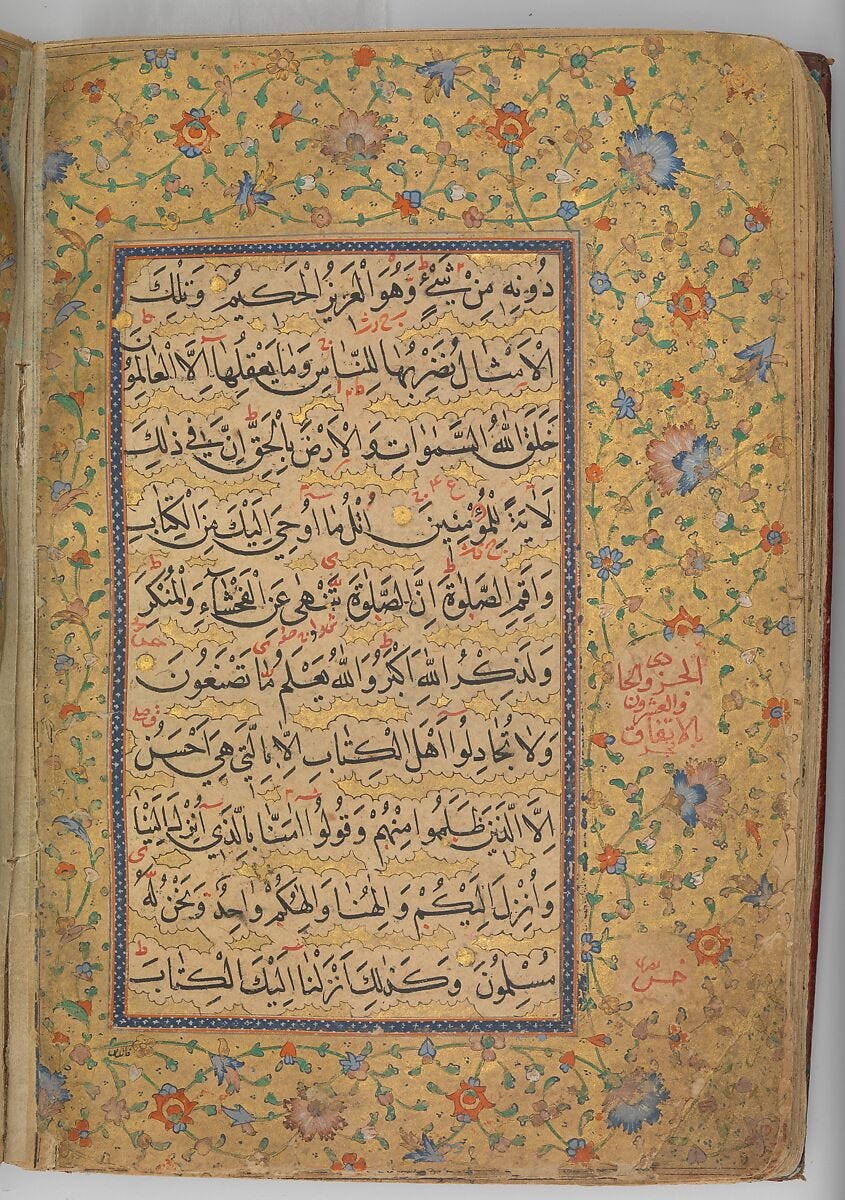 دُونِهِ مِنْ شَيْءٍ وَهُوَ الْعَزِيزُ الْحَكِيمُ وَتِلْكَ
الْأَمْثَالُ نَضْرِبُهَا لِلنَّاسِ وَمَا يَعْقِلُهَا إِلَّا الْعَالِمُونَ
خَلَقَ اللَّهُ السَّمٰوَاتِ وَالْأَرْضَ بِالْحَقِّ إِنَّ فِي ذٰلِكَ
لَآيَةً لِلْمُؤْمِنِينَ اُتْلُ مَا أُوحِيَ إِلَيْكَ مِنَ الْكِتَابِ
وَأَقِمِ الصَّلٰوةَ إِنَّ الصَّلٰوةَ تَنْهٰى عَنِ الْفَحْشَاءِ وَالْمُنْكَرِ
وَلَذِكْرُ اللَّهِ أَكْبَرُ وَاللَّهُ يَعْلَمُ مَا تَصْنَعُونَ
وَلَا تُجَادِلُوا أَهْلَ الْكِتَابِ إِلَّا بِالَّتِي هِيَ أَحْسَنُ
إِلَّا الَّذِينَ ظَلَمُوا مِنْهُمْ وَقُولُوا آمَنَّا بِالَّذِي أُنْزِلَ إِلَيْنَا
وَأُنْزِلَ إِلَيْكُمْ وَإِلٰهُنَا وَإِلٰهُكُمْ وَاحِدٌ وَنَحْنُ لَهُ
مُسْلِمُونَ وَكَذٰلِكَ أَنْزَلْنَا إِلَيْكَ الْكِتَابَ
الجزو الحادى
والعشرون
بالاتفاق